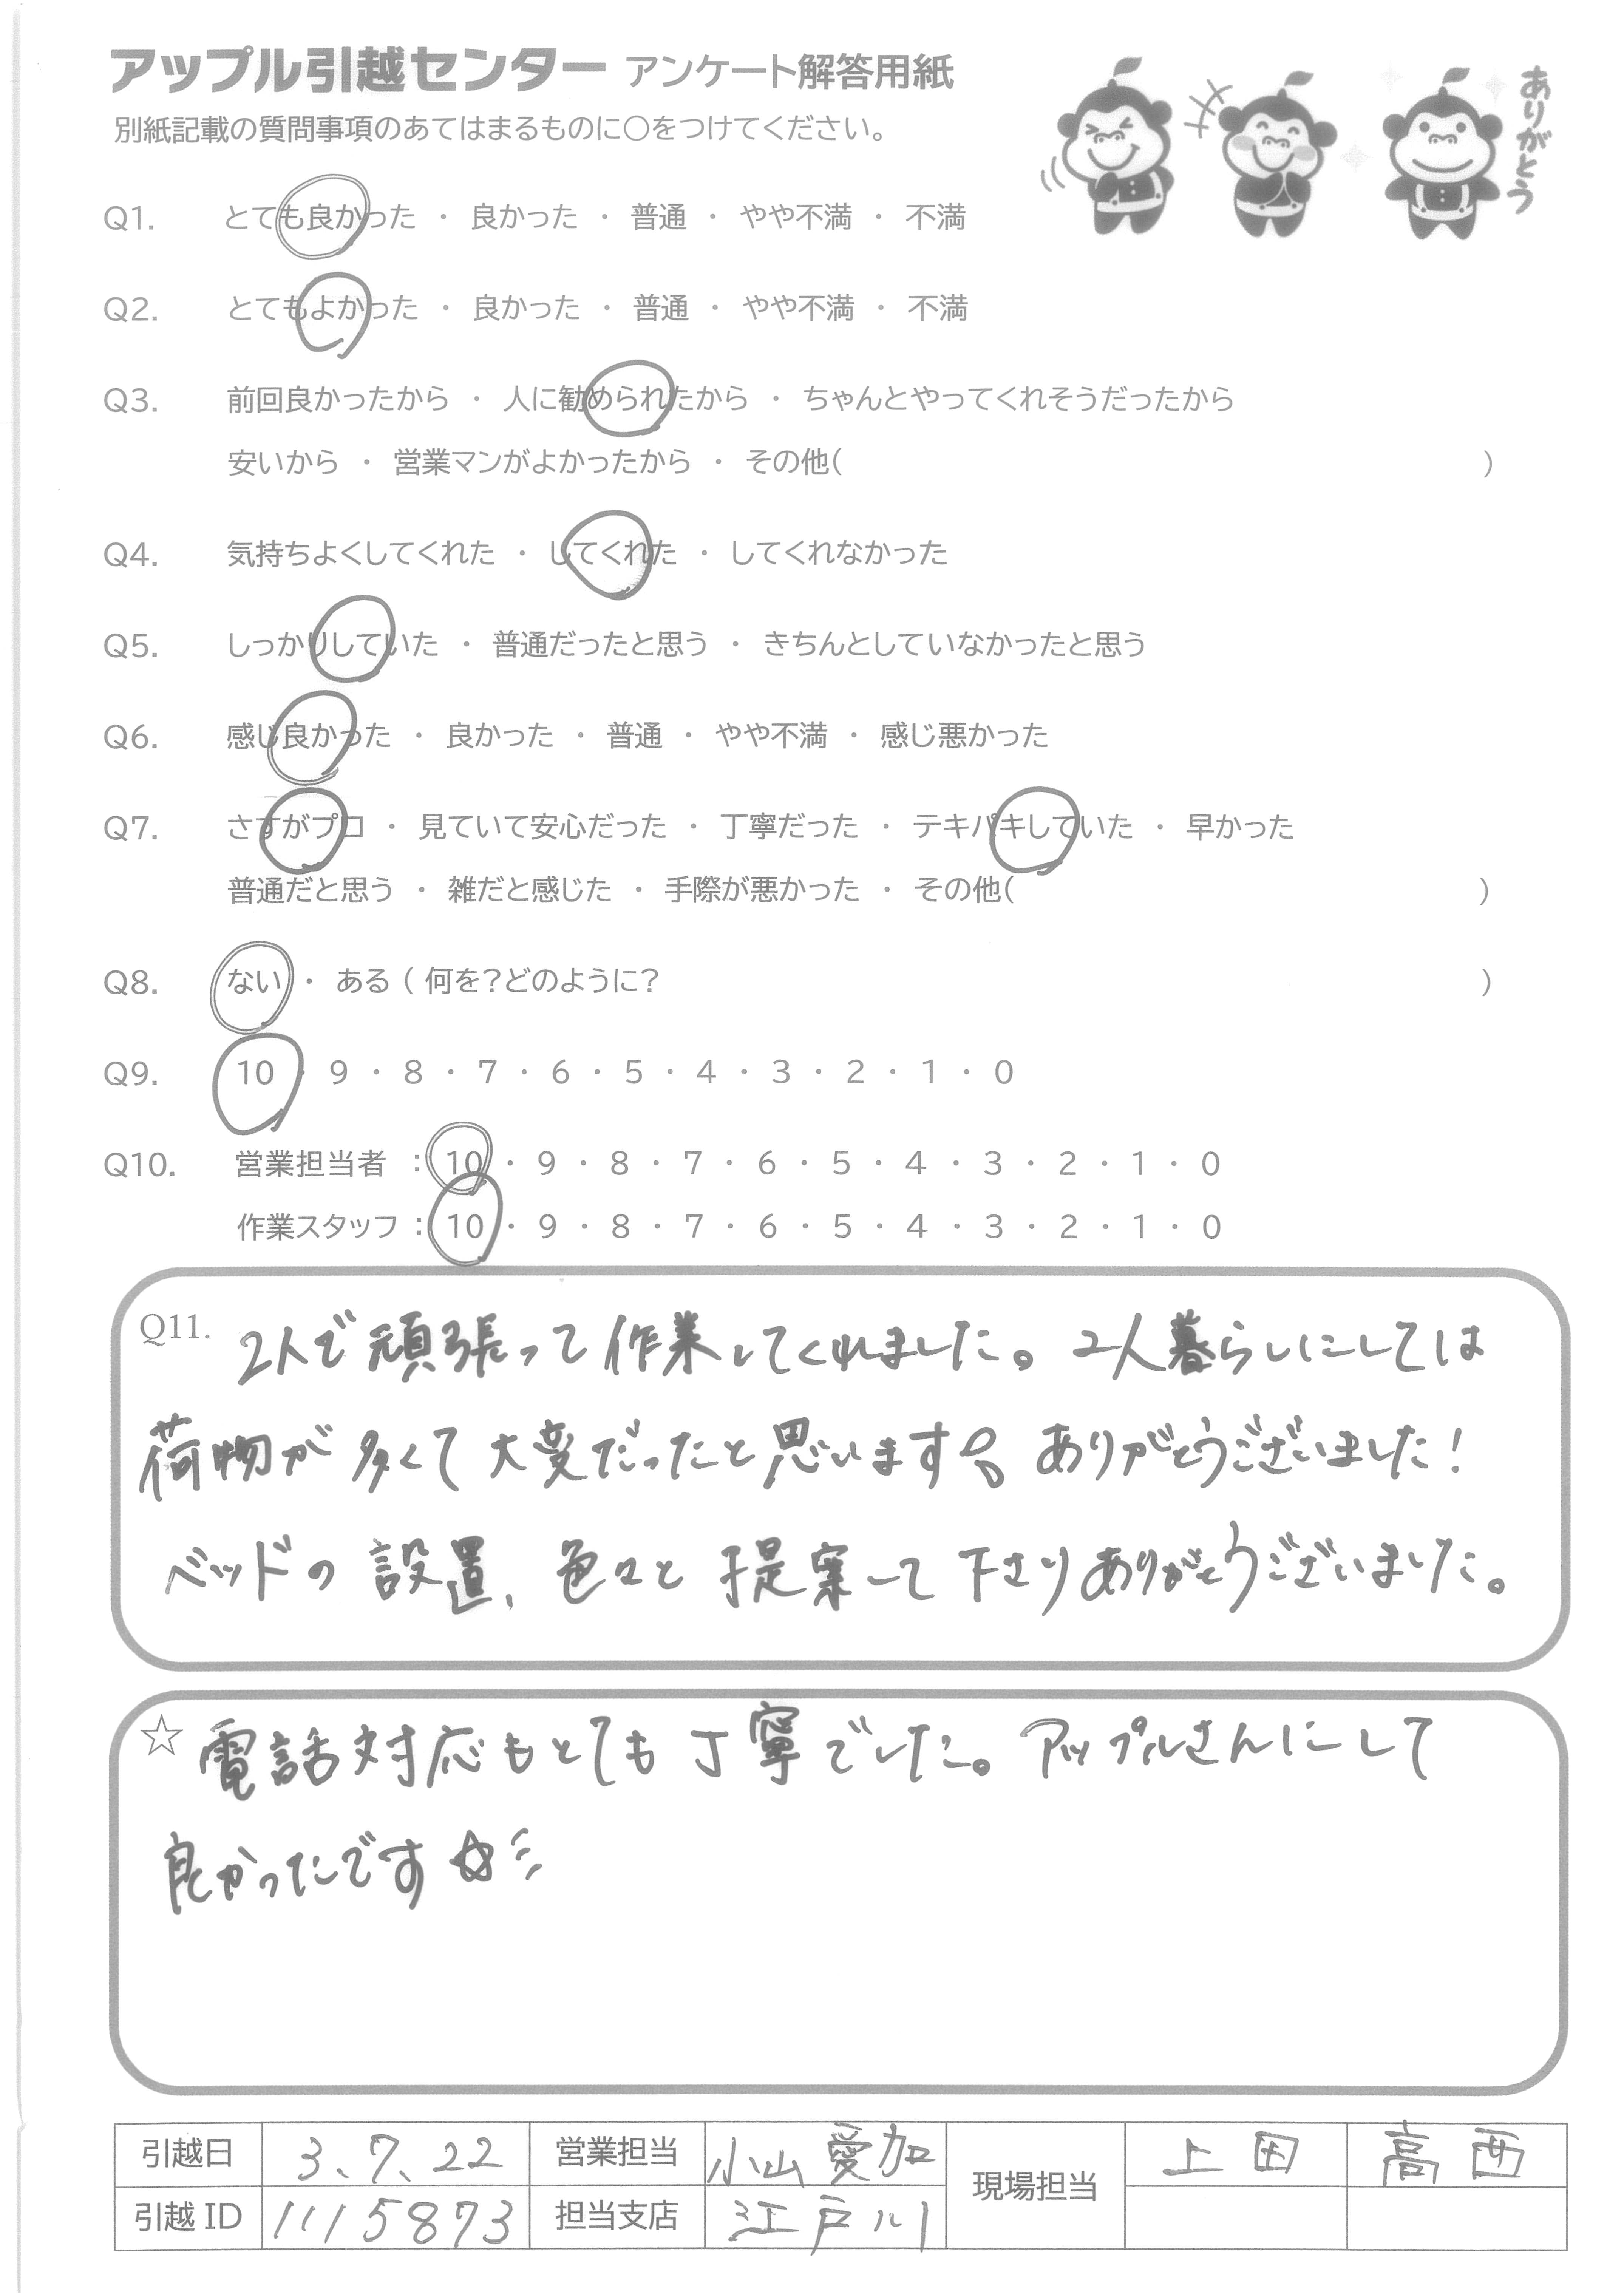 アップル引越センター アンケート解答用紙
別紙記載の質問事項のあてはまるものに○をつけてください。
ありがとう
Q1. とても良かった ・ 良かった ・ 普通 ・ やや不満 ・ 不満
Q2. とてもよかった ・ 良かった ・ 普通 ・ やや不満 ・ 不満
Q3. 前回良かったから ・ 人に勧められたから ・ ちゃんとやってくれそうだったから
安いから ・ 営業マンがよかったから ・ その他( )
Q4. 気持ちよくしてくれた ・ してくれた ・ してくれなかった
Q5. しっかりしていた ・ 普通だったと思う ・ きちんとしていなかったと思う
Q6. 感じ良かった ・ 良かった ・ 普通 ・ やや不満 ・ 感じ悪かった
Q7. さすがプロ ・ 見ていて安心だった ・ 丁寧だった ・ テキパキしていた ・ 早かった
普通だと思う ・ 雑だと感じた ・ 手際が悪かった ・ その他( )
Q8. ない ・ ある ( 何を?どのように? )
Q9. 10 ・ 9 ・ 8 ・ 7 ・ 6 ・ 5 ・ 4 ・ 3 ・ 2 ・ 1 ・ 0
Q10. 営業担当者 : 10 ・ 9 ・ 8 ・ 7 ・ 6 ・ 5 ・ 4 ・ 3 ・ 2 ・ 1 ・ 0
作業スタッフ : 10 ・ 9 ・ 8 ・ 7 ・ 6 ・ 5 ・ 4 ・ 3 ・ 2 ・ 1 ・ 0
Q11. 2人で頑張って作業してくれました。2人暮らしにしては
荷物が多くて大変だったと思います ありがとうございました!
ベッドの設置、色々と提案して下さりありがとうございました。
☆ 電話対応もとても丁寧でした。アップルさんにして
良かったです☆
引越日 3、7、22 営業担当 小山愛加 現場担当 上田 高西
引越ID 1115873 担当支店 江戸川